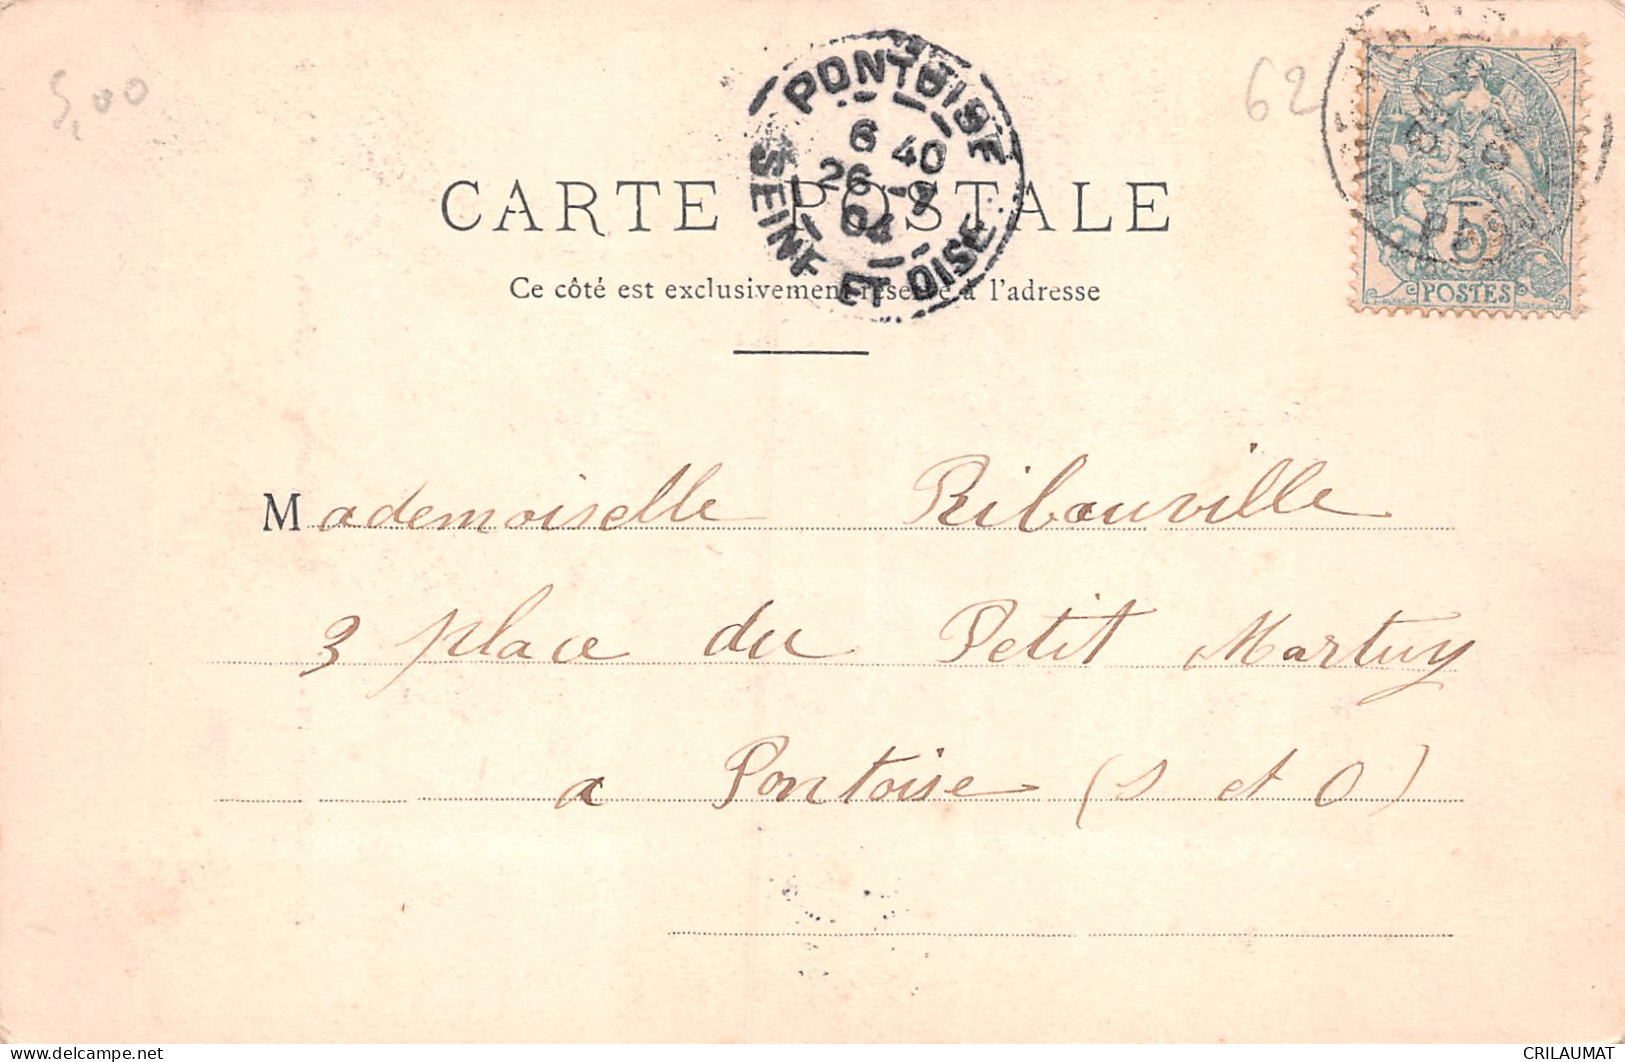 5,00
62
PONTOISE
6 40
26 -7
04
SEINE ET OISE
CARTE POSTALE
Ce côté est exclusivement réservé à l'adresse
5
POSTES
Mademoiselle Ribauville
3 place du Petit Martuy
a Pontoise (S et O)
CRILAUMAT